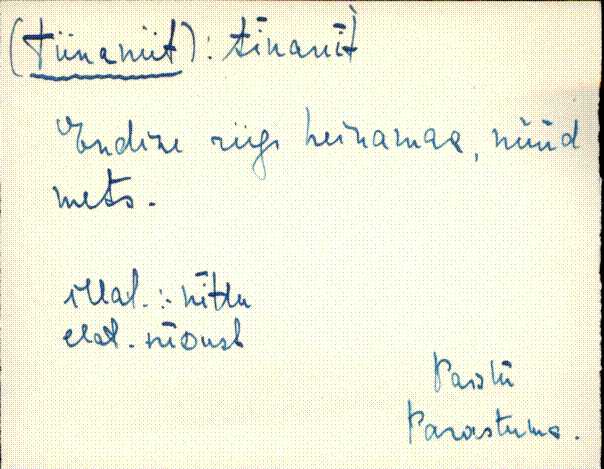 (Tiinaniit): tīnanīt̀
Endine riigi heinamaa, nüüd
mets.
illat. : nīttu
elat. nīDust
Paistu
Parastuma.